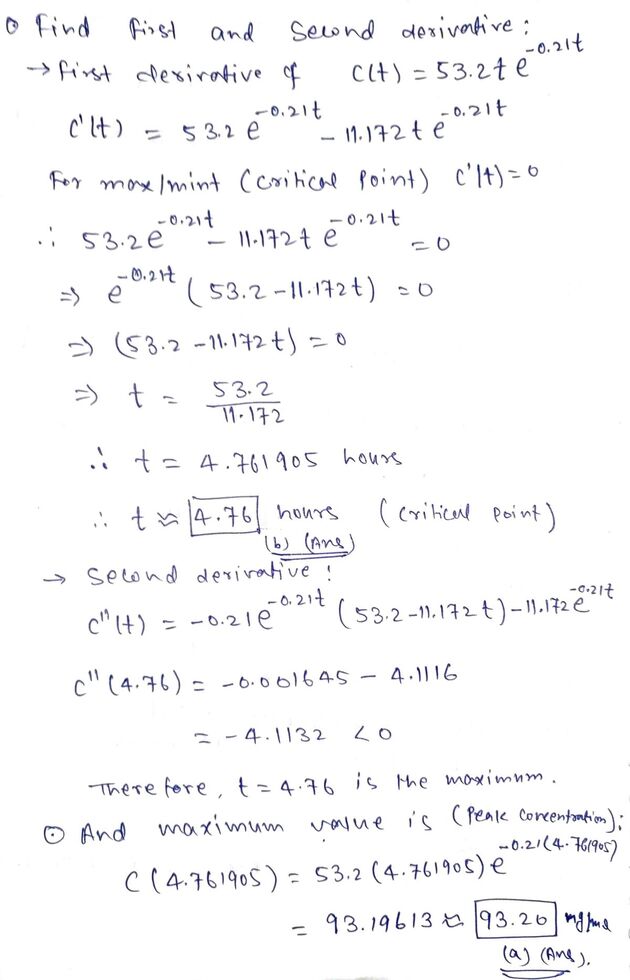 ⊙ Find first and Second derivative :
→ first derivative of C(t) = 53.2 t e^{-0.21t}
C'(t) = 53.2 e^{-0.21t} - 11.172 t e^{-0.21t}
For max/mint (Critical Point) C'(t) = 0
∴ 53.2 e^{-0.21t} - 11.172 t e^{-0.21t} = 0
⇒ e^{-0.21t} (53.2 - 11.172 t) = 0
⇒ (53.2 - 11.172 t) = 0
⇒ t = 53.2 / 11.172
∴ t = 4.761905 hours
∴ t ≈ 4.76 hours (critical point)
(b) (Ans)
→ Second derivative :
C''(t) = -0.21 e^{-0.21t} (53.2 - 11.172 t) - 11.172 e^{-0.21t}
C''(4.76) = -0.001645 - 4.1116
= -4.1132 < 0
Therefore, t = 4.76 is the maximum.
⊙ And maximum value is (Peak Concentration) ;
C(4.761905) = 53.2 (4.761905) e^{-0.21(4.761905)}
= 93.19613 ≈ 93.20
(a) (Ans).